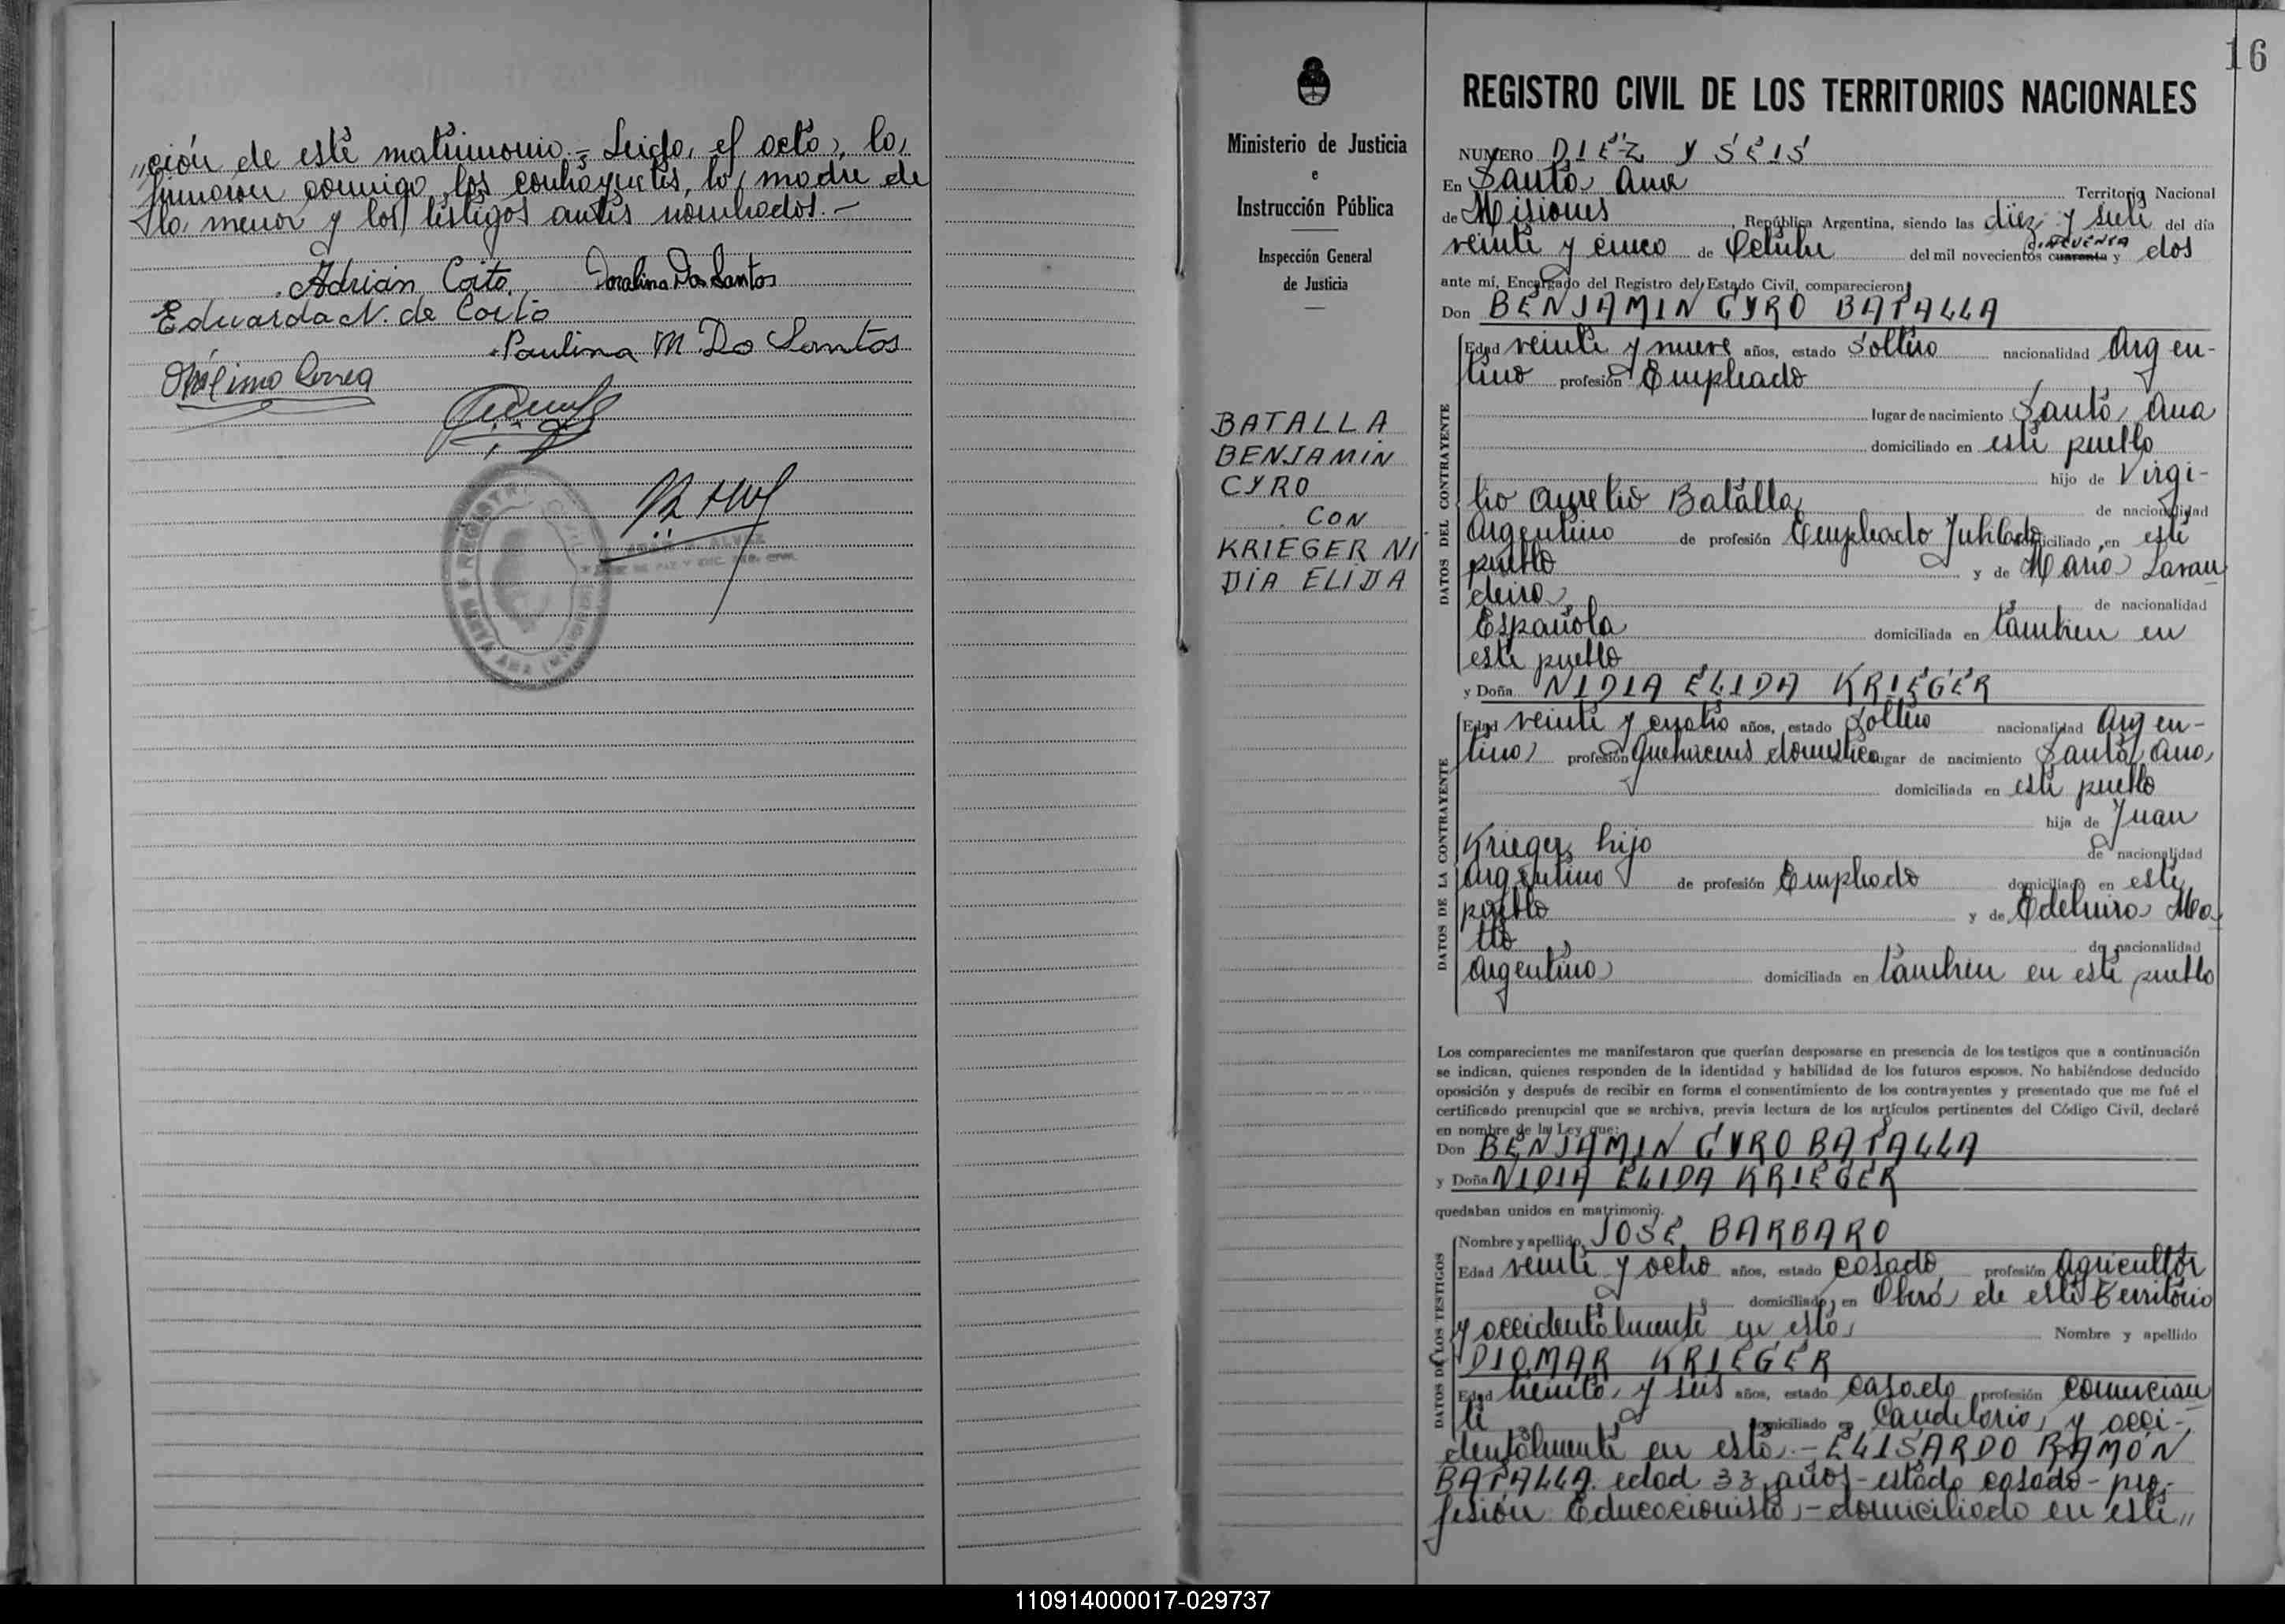 „ción de este matrimonio.- Leida, el acta, la,
firmaron conmigo, los contrayentes, la, madre de
la, menor y los testigos antes nombrados.-
Adrián Coito. Doralina Dos Santos
Eduarda N. de Coito
Paulina M Do Santos
Correa
REGISTRO CIVIL
16
Ministerio de Justicia
e
Instrucción Pública
Inspección General
de Justicia
BATALLA
BENJAMIN
CYRO
CON
KRIEGER NI
DIA ELIDA
REGISTRO CIVIL DE LOS TERRITORIOS NACIONALES
NUMERO DIEZ Y SEIS
En Santa Ana Territorio Nacional
de Misiones, República Argentina, siendo las diez y siete del día
veinte y cinco de Octubre del mil novecientos cuarenta CINCUENTA y dos
ante mí, Encargado del Registro del Estado Civil, comparecieron:
Don BENJAMIN CYRO BATALLA
DATOS DEL CONTRAYENTE
Edad veinte y nueve años, estado Soltero nacionalidad Argen-
tino profesión Empleado
lugar de nacimiento Santa Ana
domiciliado en este pueblo
hijo de Virgi-
lio Aurelio Batalla, de nacionalidad
Argentino de profesión Empleado Jubilado domiciliado en este
pueblo y de María Lavan
deira, de nacionalidad
Española domiciliada en tambien en
este pueblo
y Doña NIDIA ELIDA KRIEGER
DATOS DE LA CONTRAYENTE
Edad veinte y cuatro años, estado Soltera nacionalidad Argen-
tina, profesión Quehaceres domestico lugar de nacimiento Santa, Ana,
domiciliada en este pueblo
hija de Juan
Krieger, hijo de nacionalidad
Argentino de profesión Empleado domiciliado en este
pueblo y de Edelmira Ma
tto de nacionalidad
Argentina domiciliada en tambien en este pueblo
Los comparecientes me manifestaron que querían desposarse en presencia de los testigos que a continuación
se indican, quienes responden de la identidad y habilidad de los futuros esposos. No habiéndose deducido
oposición y después de recibir en forma el consentimiento de los contrayentes y presentado que me fué el
certificado prenupcial que se archiva, previa lectura de los artículos pertinentes del Código Civil, declaré
en nombre de la Ley que:
Don BENJAMIN CYRO BATALLA
y Doña NIDIA ELIDA KRIEGER
quedaban unidos en matrimonio.
DATOS DE LOS TESTIGOS
Nombre y apellido JOSE BARBARO
Edad veinte y ocho años, estado casado profesión Agricultor
domiciliado en Oberá, de este Territorio
y accidentalmente en esta, Nombre y apellido
DIOMAR KRIEGER
Edad treinta, y seis años, estado casado profesión comercian
te domiciliado en Candelaria, y acci-
dentalmente en esta.- ELISARDO RAMÓN
BATALLA edad 33 años - estado casado - pro-
fesión Educacionista, - domiciliado en este„
110914000017-029737